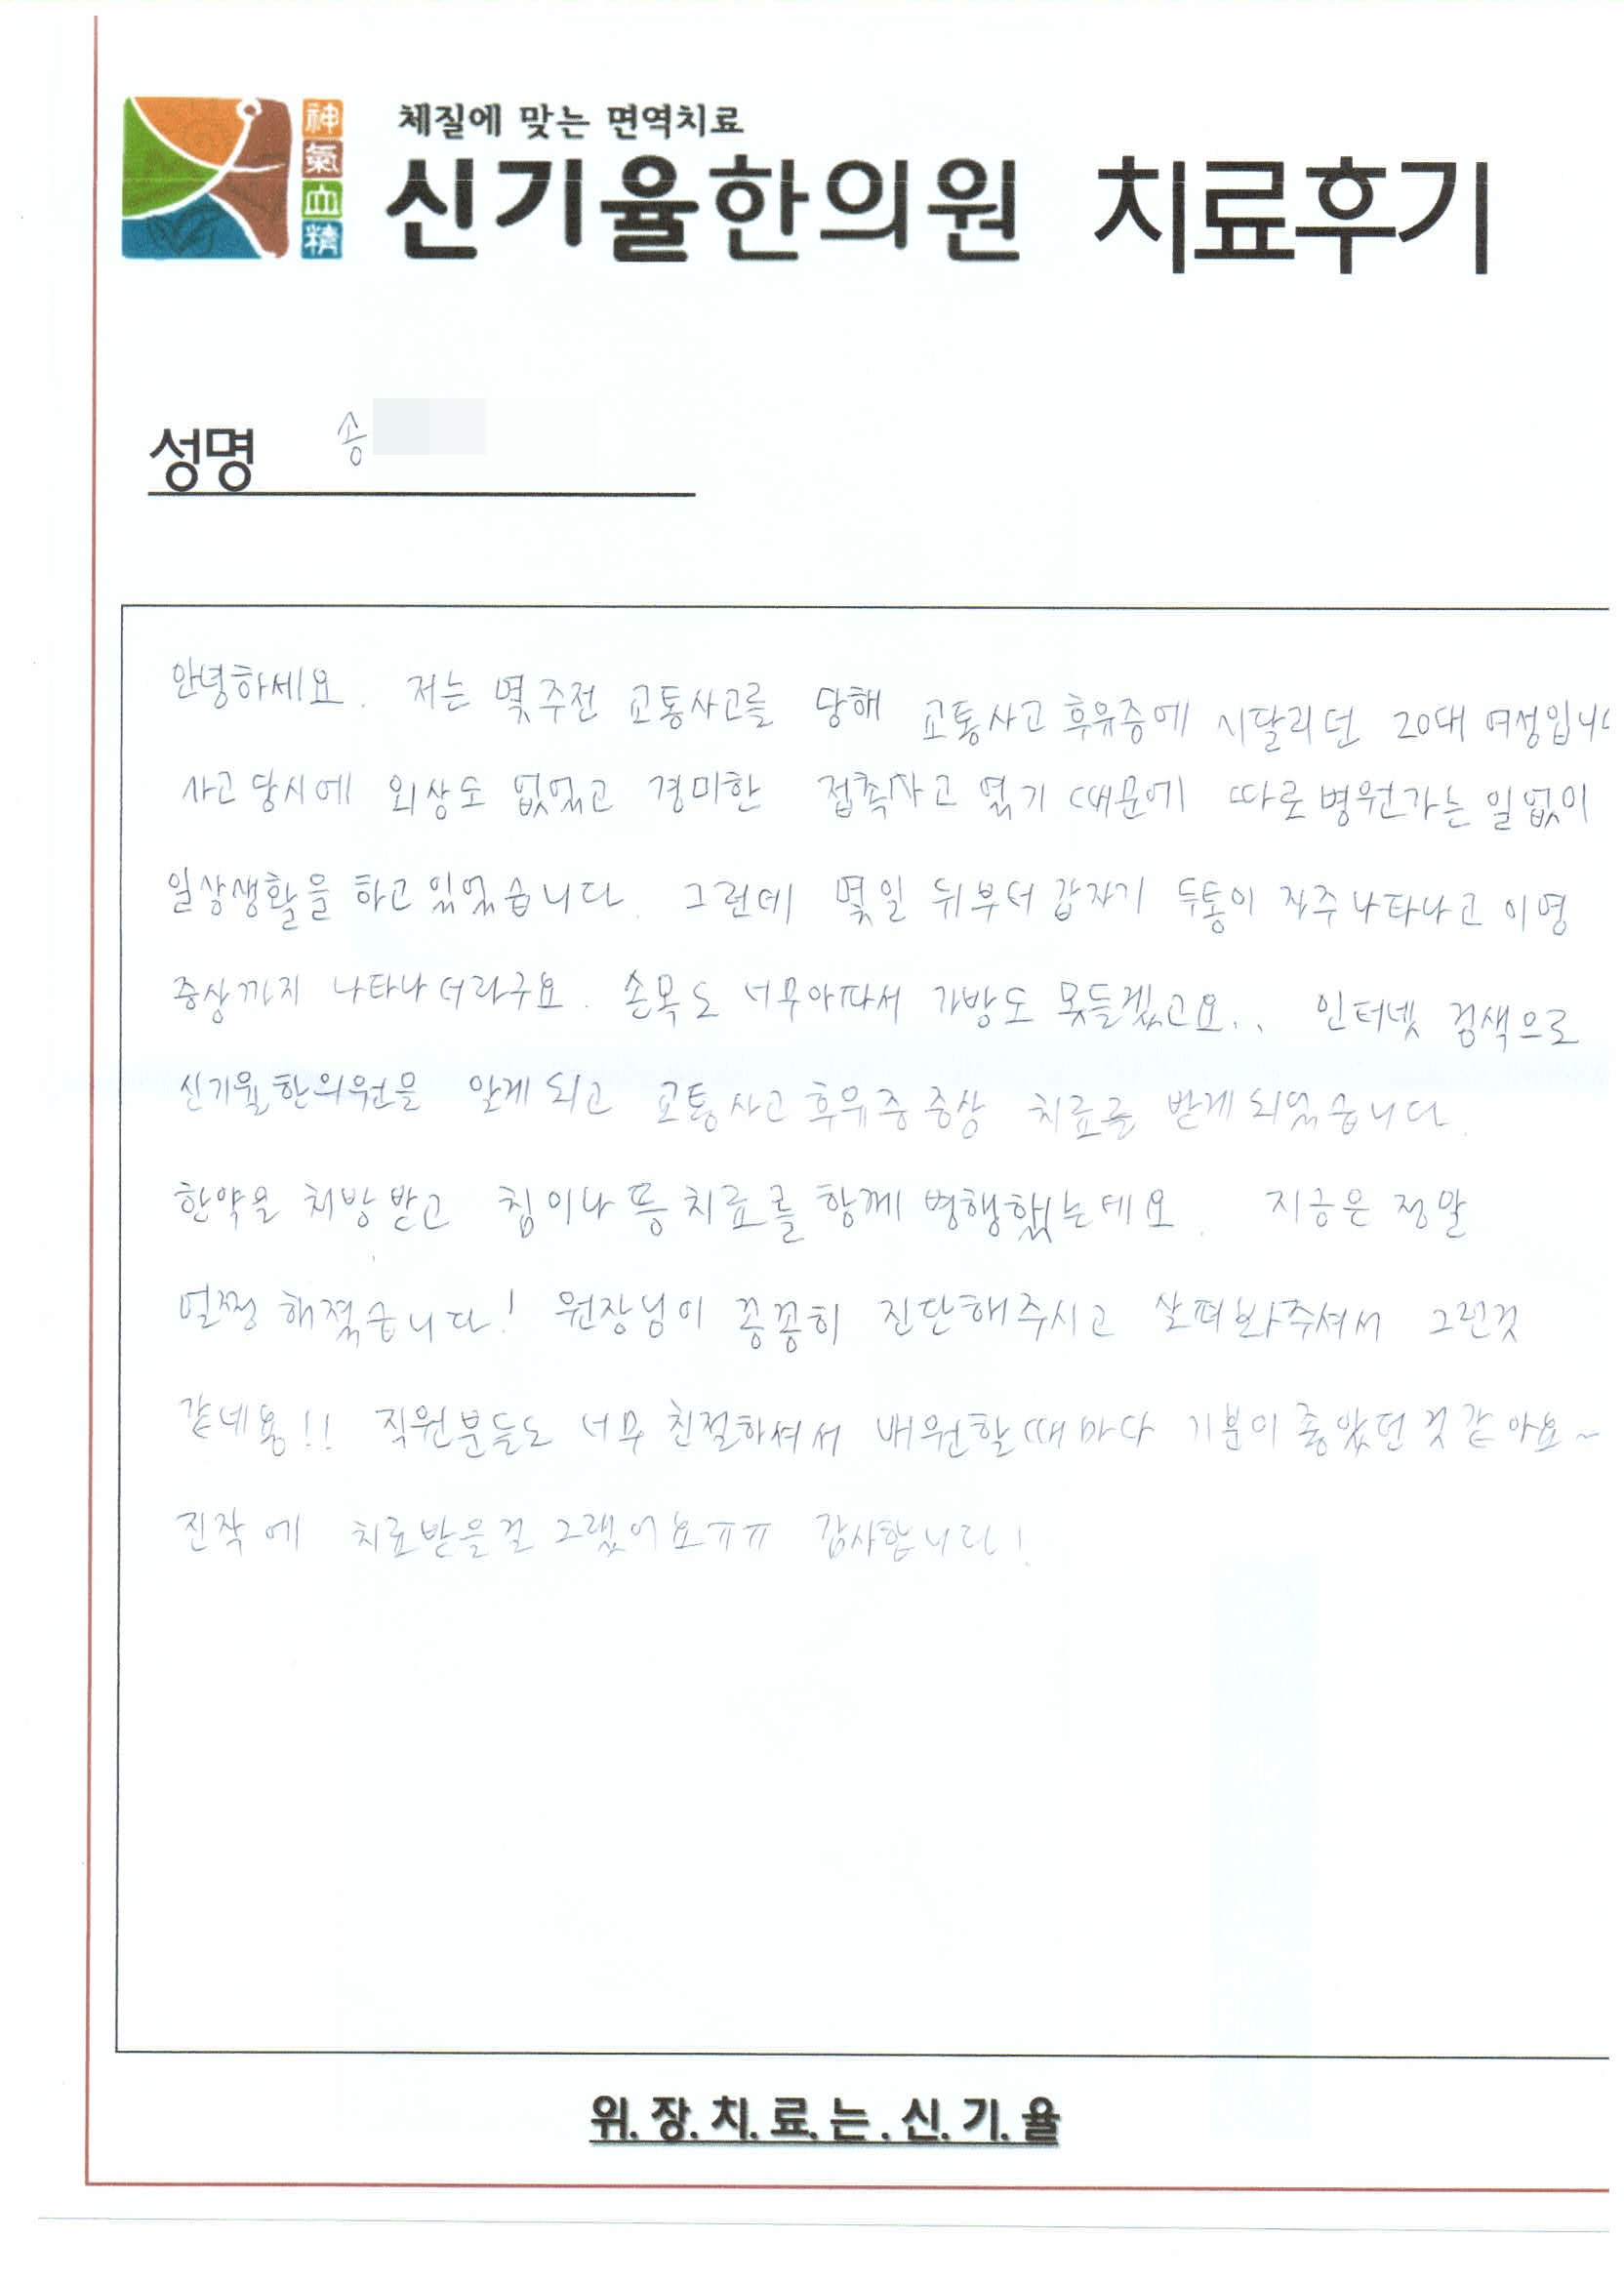 神
氣
血
精
체질에 맞는 면역치료
신기율한의원 치료후기
성명 송
안녕하세요. 저는 몇주전 교통사고를 당해 교통사고 후유증에 시달리던 20대 여성입니
사고 당시에 외상도 없었고 경미한 접촉사고 였기 때문에 따로 병원가는 일없이
일상생활을 하고 있었습니다. 그런데 몇일 뒤부터 갑자기 두통이 자주 나타나고 이명
증상까지 나타나더라구요. 손목도 너무아파서 가방도 못들겠고요.. 인터넷 검색으로
신기율한의원을 알게 되고 교통사고 후유증 증상 치료를 받게 되었습니다.
한약을 처방 받고 침이나 뜸 치료를 함께 병행했는데요. 지금은 정말
멀쩡해졌습니다! 원장님이 꼼꼼히 진단해주시고 살펴봐주셔서 그런것
같네용!! 직원분들도 너무 친절하셔서 내원할때마다 기분이 좋았던 것 같아요~
진작에 치료받을걸 그랬어요ㅠㅠ 감사합니다!
위.장.치.료.는.신.기.율